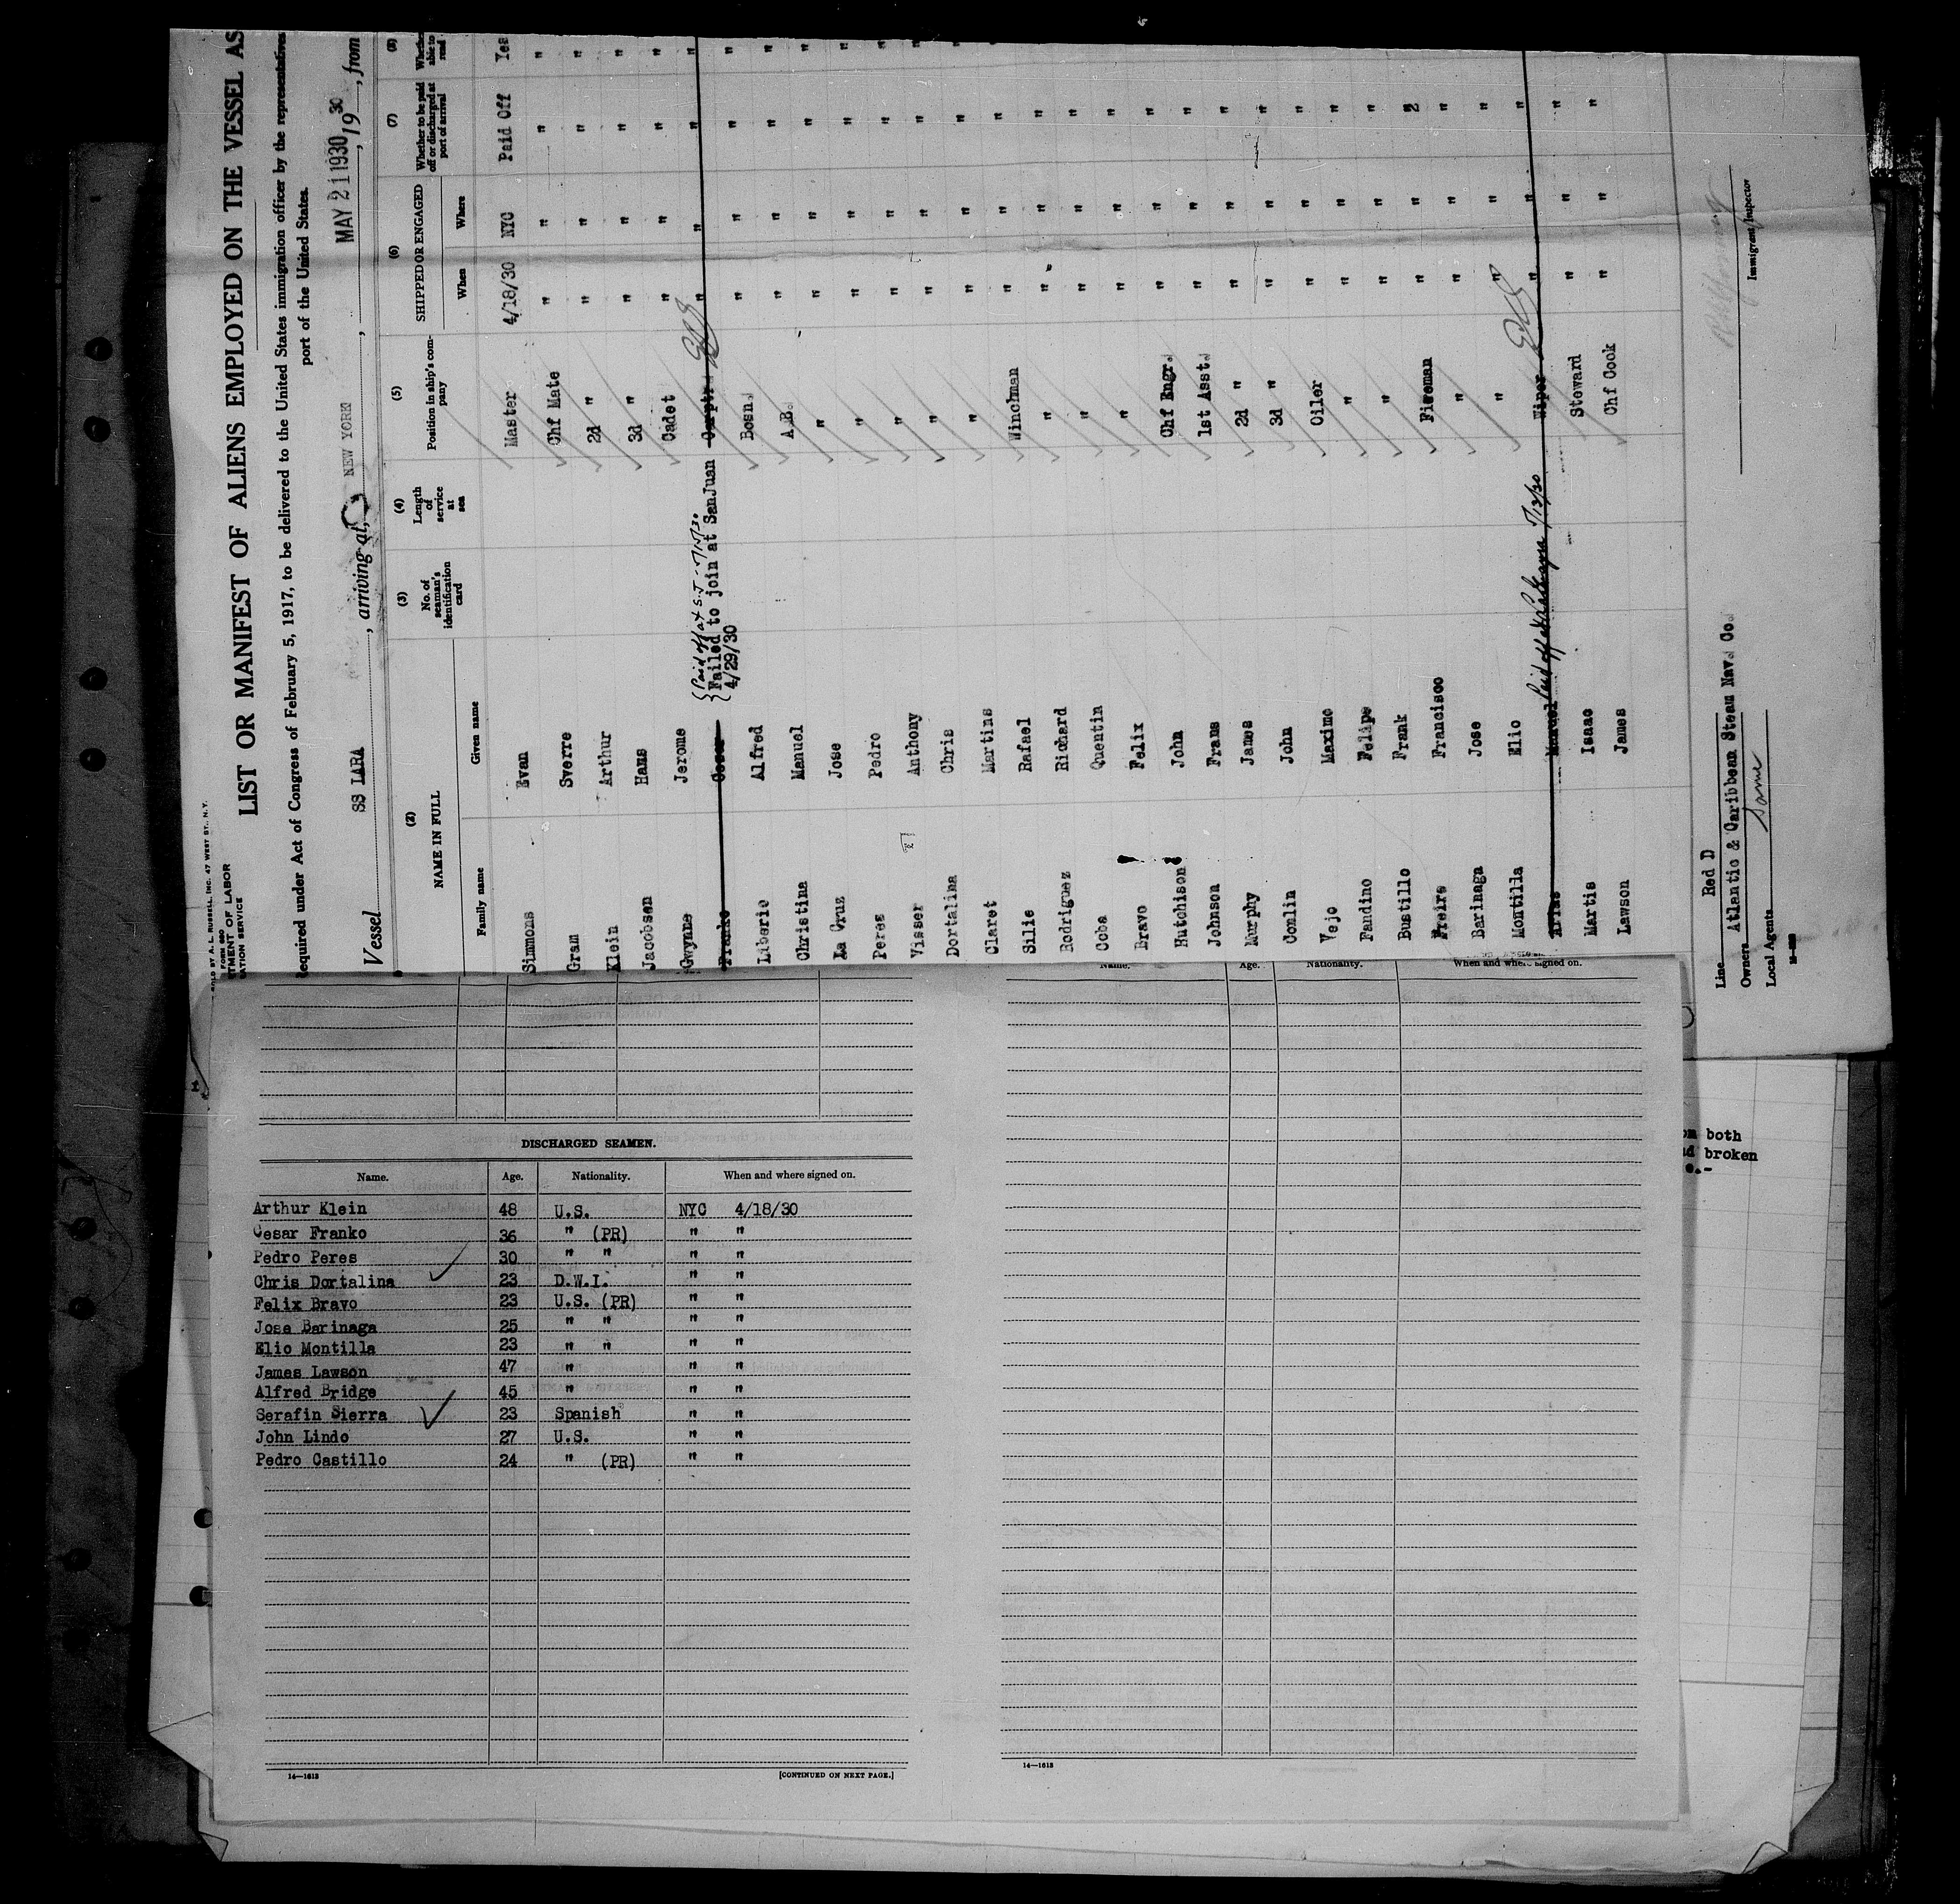 SOLD BY A. L. RUSSELL, INC. 47 WEST ST., N.Y.
FORM 680
TMENT OF LABOR
RATION SERVICE
LIST OR MANIFEST OF ALIENS EMPLOYED ON THE VESSEL AS
Required under Act of Congress of February 5, 1917, to be delivered to the United States immigration officer by the representatives
port of the United States.
Vessel SS LARA, arriving at, NEW YORK, MAY 21 1930, 1930, from
(2) (3) (4) (5) (6) (7) (8)
NAME IN FULL No. of seaman's identification card Length of service at sea Position in ship's company SHIPPED OR ENGAGED Whether to be paid off or discharged at port of arrival Whether able to read
Family name Given name When Where
Simmons Evan Master 4/18/30 NYC Paid Off Yes
Gram Sverre Chf Mate " " " "
Klein Arthur 2d " " " " "
Jacobsen Hans 3d " " " " "
Gwynne Jerome Cadet " " " "
Franko Cesar { Paid off at S.J. { Failed to join at SanJuan 4/29/30 Carptr. " " " "
Liberie Alfred Bosn. " " " "
Christina Manuel A.B. " " " "
La Cruz Jose " " " " "
Peres Pedro " " " " "
Visser Anthony " " " " "
Dortalina Chris " " " " "
Claret Martins " " " " "
Silie Rafael Winchman " " "
Rodriguez Richard " " " "
Coba Quentin " " " "
Bravo Felix " " " "
Hutchison John Chf Engr. " " "
Johnson Frans 1st Asst. " " "
Murphy James 2d " " " "
Conlin John 3d " " " "
Vejo Maximo Oiler " " "
Fandino Felipe " " " "
Bustillo Frank " " " "
Freire Francisco Fireman " " "
Barinaga Jose " " " "
Montilla Elio " " " "
Arias Manuel Paid off at Wiper " " "
Martis Isaac Steward " " "
Lawson James Chf Cook " " "
Line Red D
Owners Atlantic & Caribbean Steam Nav. Co.
Local Agents Same
Immigrant Inspector
DISCHARGED SEAMEN.
Name. Age. Nationality. When and where signed on.
Arthur Klein 48 U.S. NYC 4/18/30
Cesar Franko 36 " (PR) " "
Pedro Peres 30 " " " "
Chris Dortalina 23 D.W.I. " "
Felix Bravo 23 U.S. (PR) " "
Jose Barinaga 25 " " " "
Elio Montilla 23 " " " "
James Lawson 47 " " "
Alfred Bridge 45 " " "
Serafin Sierra 23 Spanish " "
John Lindo 27 U.S. " "
Pedro Castillo 24 " (PR) " "
14—1613
[CONTINUED ON NEXT PAGE.]
Name. Age. Nationality. When and where signed on.
14—1613
both
broken